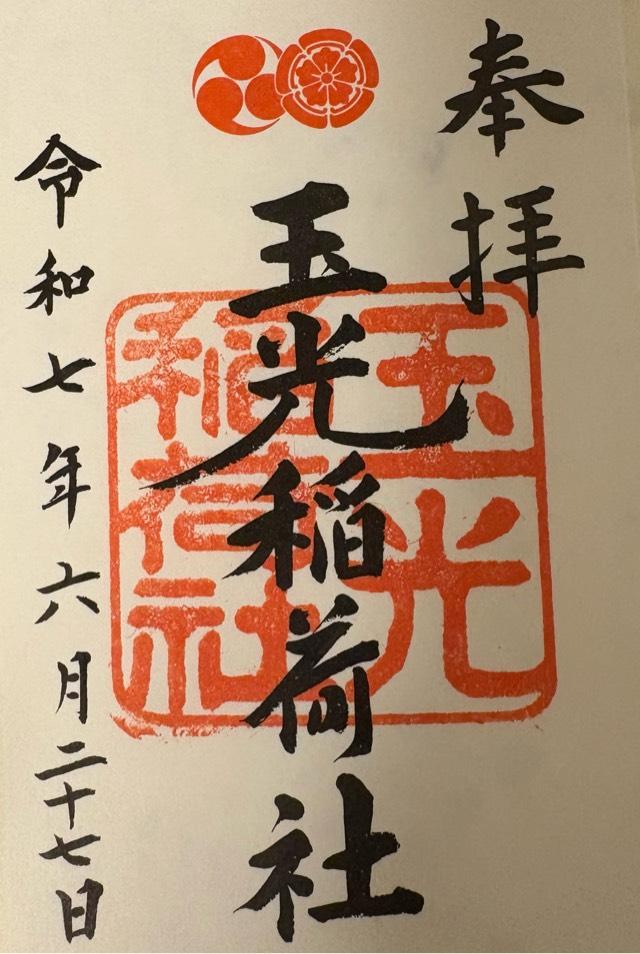 奉拝
玉光稲荷社
玉光
稲荷社
令和七年六月二十七日